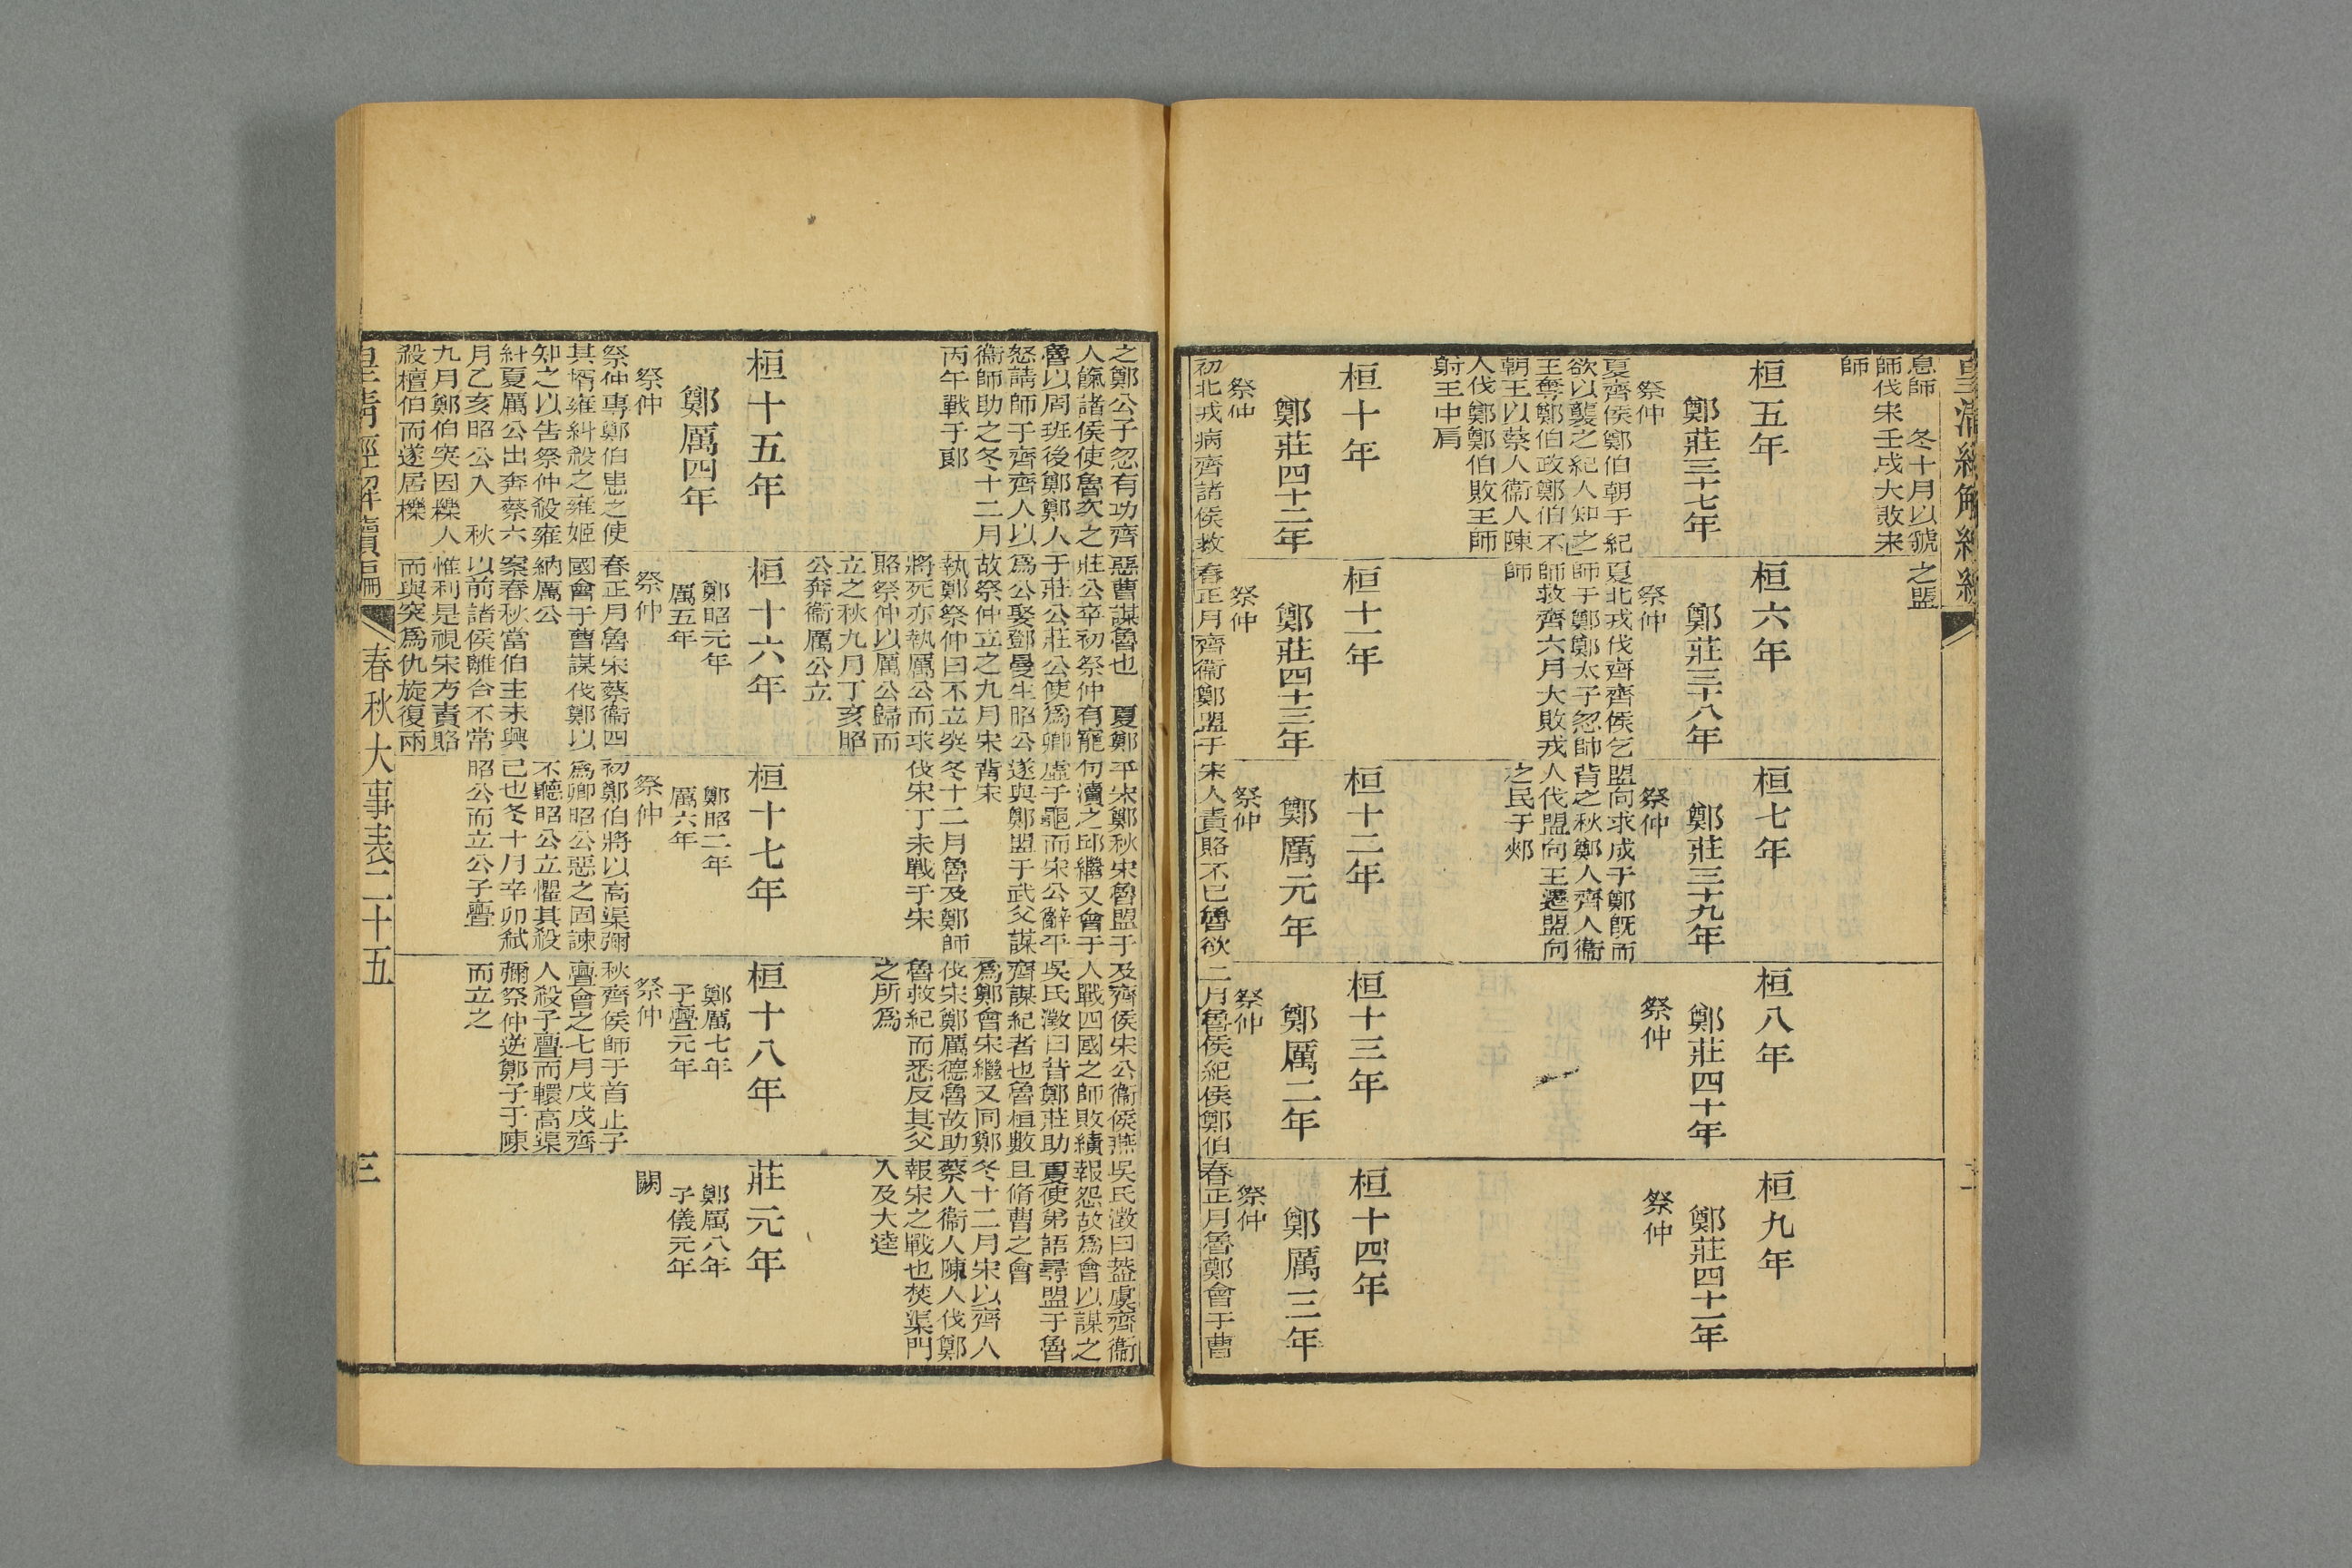 皇清經解續編
二
息師　冬十月以虢
師伐宋壬戌大敗宋
師
之盟
桓五年
鄭莊三十七年
祭仲
夏齊侯鄭伯朝于紀
欲以襲之紀人知之
王奪鄭伯政鄭伯不
朝王以蔡人衞人陳
人伐鄭鄭伯敗王師
射王中肩
桓六年
鄭莊三十八年
祭仲
夏北戎伐齊齊侯乞
師于鄭鄭太子忽帥
師救齊六月大敗戎
師
桓七年
鄭莊三十九年
祭仲
盟向求成于鄭旣而
背之秋鄭人齊人衞
人伐盟向王遷盟向
之民于郟
桓八年
鄭莊四十年
祭仲
桓九年
鄭莊四十一年
祭仲
桓十年
鄭莊四十二年
祭仲
初北戎病齊諸侯救
桓十一年
鄭莊四十三年
祭仲
春正月齊衞鄭盟于
桓十二年
鄭厲元年
祭仲
宋人責賂不已魯欲
桓十三年
鄭厲二年
祭仲
二月魯侯紀侯鄭伯
桓十四年
鄭厲三年
祭仲
春正月魯鄭會于曹
之鄭公子忽有功齊
人餼諸侯使魯次之
魯以周班後鄭鄭人
怒請師于齊齊人以
衞師助之冬十二月
丙午戰于郎
惡曹謀魯也　夏鄭
莊公卒初祭仲有寵
于莊公莊公使爲卿
爲公娶鄧曼生昭公
故祭仲立之九月宋
執鄭祭仲曰不立突
將死亦執厲公而求
賂祭仲以厲公歸而
立之秋九月丁亥昭
公奔衞厲公立
平宋鄭秋宋魯盟于
句瀆之邱繼又會于
虛于龜而宋公辭平
遂與鄭盟于武父謀
背宋
冬十二月魯及鄭師
伐宋丁未戰于宋
及齊侯宋公衞侯燕
人戰四國之師敗績
吳氏澂曰昔鄭莊助
齊謀紀者也魯桓數
爲鄭會宋繼又同鄭
伐宋鄭厲德魯故助
魯救紀而悉反其父
之所爲
吳氏澂曰葢虞齊衞
報怨故爲會以謀之
夏使弟語尋盟于魯
且脩曹之會
冬十二月宋以齊人
蔡人衞人陳人伐鄭
報宋之戰也焚渠門
入及大逵
桓十五年
鄭厲四年
祭仲
祭仲專鄭伯患之使
其壻雍糾殺之雍姬
知之以告祭仲殺雍
糾夏厲公出奔蔡六
月乙亥昭公入　秋
九月鄭伯突因櫟人
殺檀伯而遂居櫟
桓十六年
鄭昭元年
厲五年
祭仲
春正月魯宋蔡衞四
國會于曹謀伐鄭以
納厲公
案春秋當伯主未興
以前諸侯離合不常
惟利是視宋方責賂
而與突爲仇旋復兩
桓十七年
鄭昭二年
厲六年
祭仲
初鄭伯將以高渠彌
爲卿昭公惡之固諫
不聽昭公立懼其殺
己也冬十月辛卯弒
昭公而立公子亹
桓十八年
鄭厲七年
子亹元年
祭仲
秋齊侯師于首止子
亹會之七月戊戌齊
人殺子亹而轘高渠
彌祭仲逆鄭子于陳
而立之
莊元年
鄭厲八年
子儀元年
闕
皇清經解續編
春秋大事表二十五
三